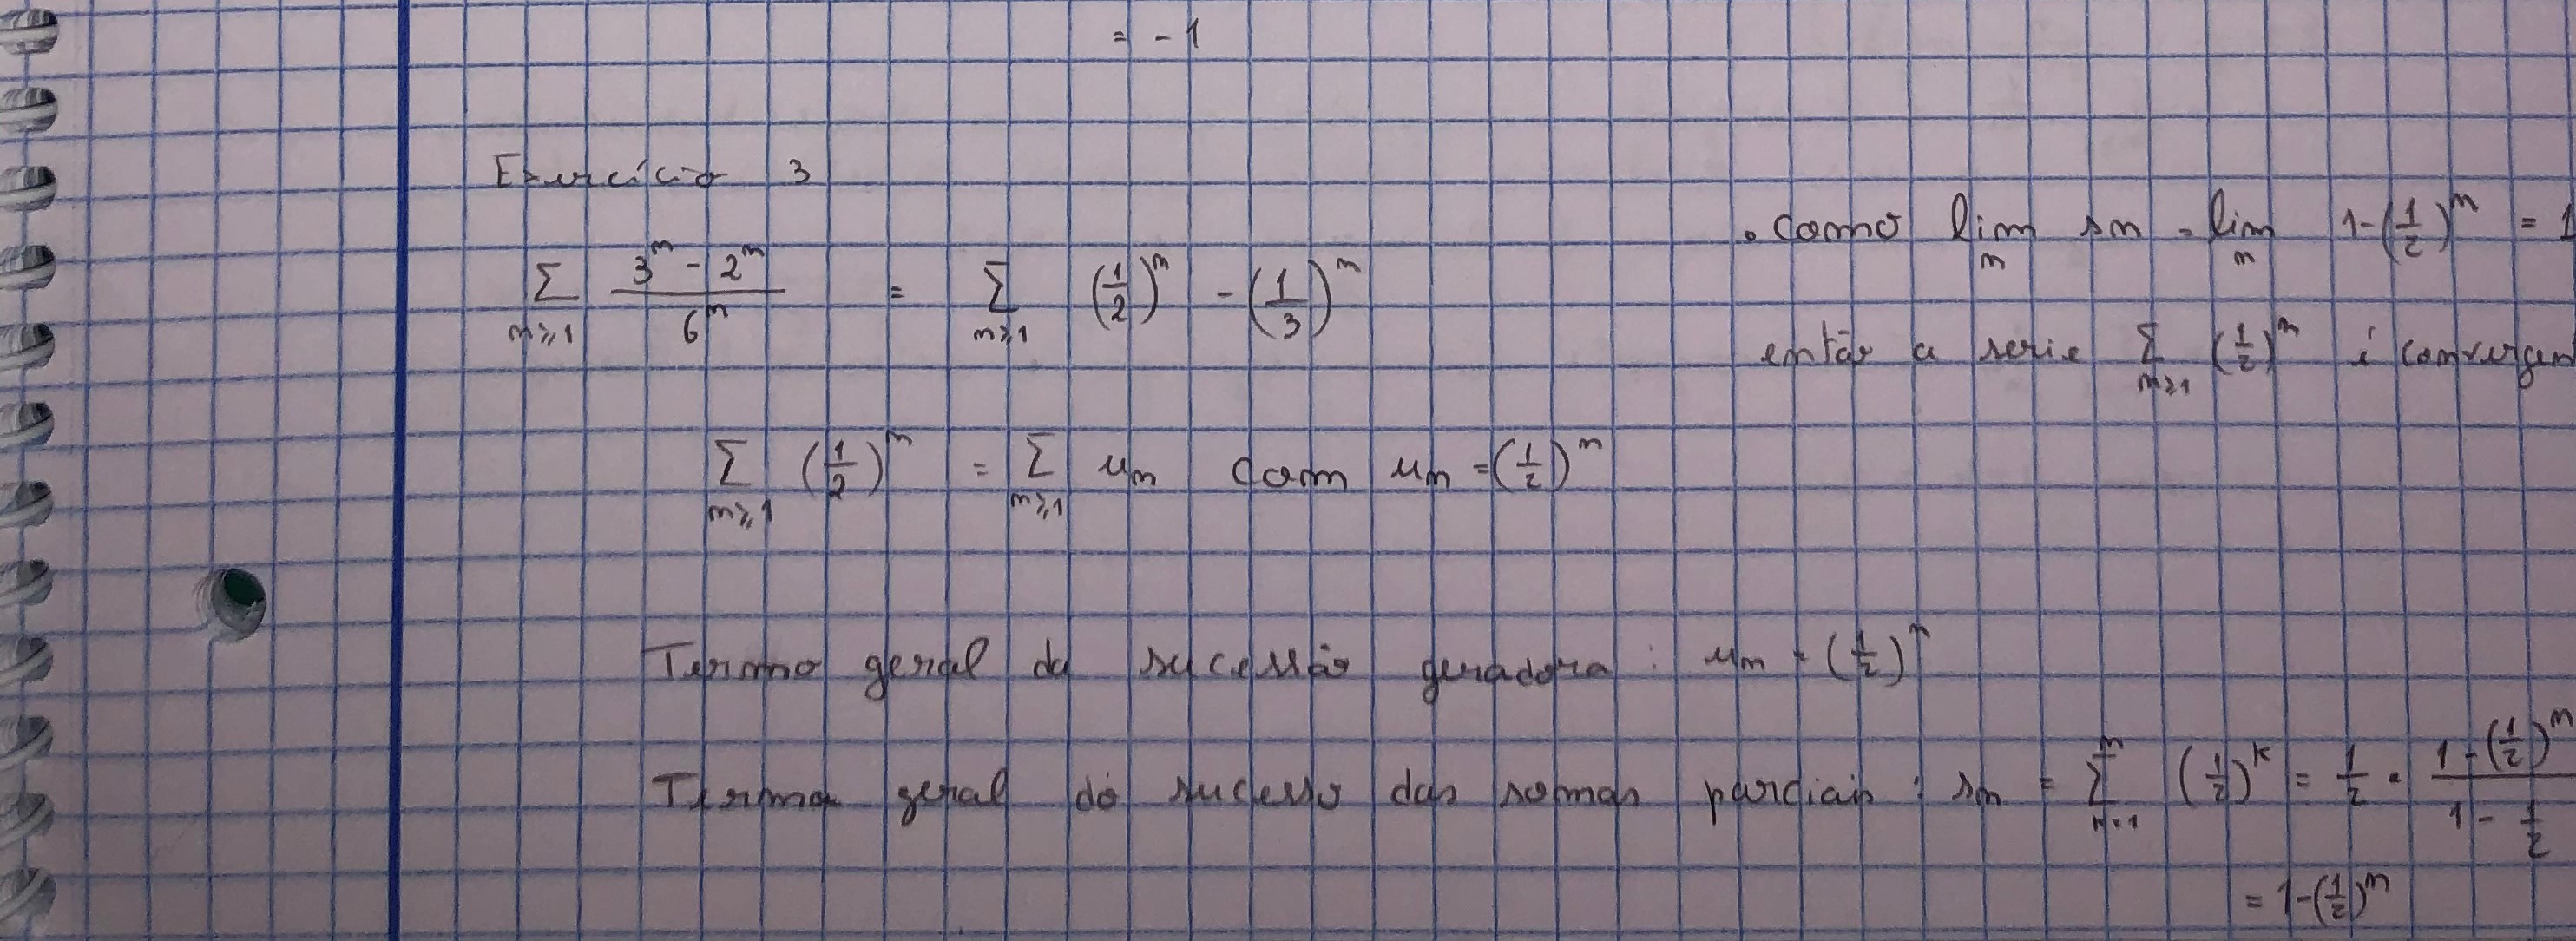 = - 1
Exercício 3
∑_{n≥1} (3^n - 2^n)/6^n = ∑_{n≥1} (1/2)^n - (1/3)^n
∑_{n≥1} (1/2)^n = ∑_{n≥1} u_n com u_n = (1/2)^n
Termo geral da sucessão geradora : u_n = (1/2)^n
Termo geral do sucesso das somas parciais : s_n = ∑_{k=1}^{n} (1/2)^k = 1/2 • (1-(1/2)^n)/(1-1/2)
= 1-(1/2)^n
• Como lim_n sn = lim_n 1-(1/2)^n = 1
então a serie ∑_{n≥1} (1/2)^n é convergen